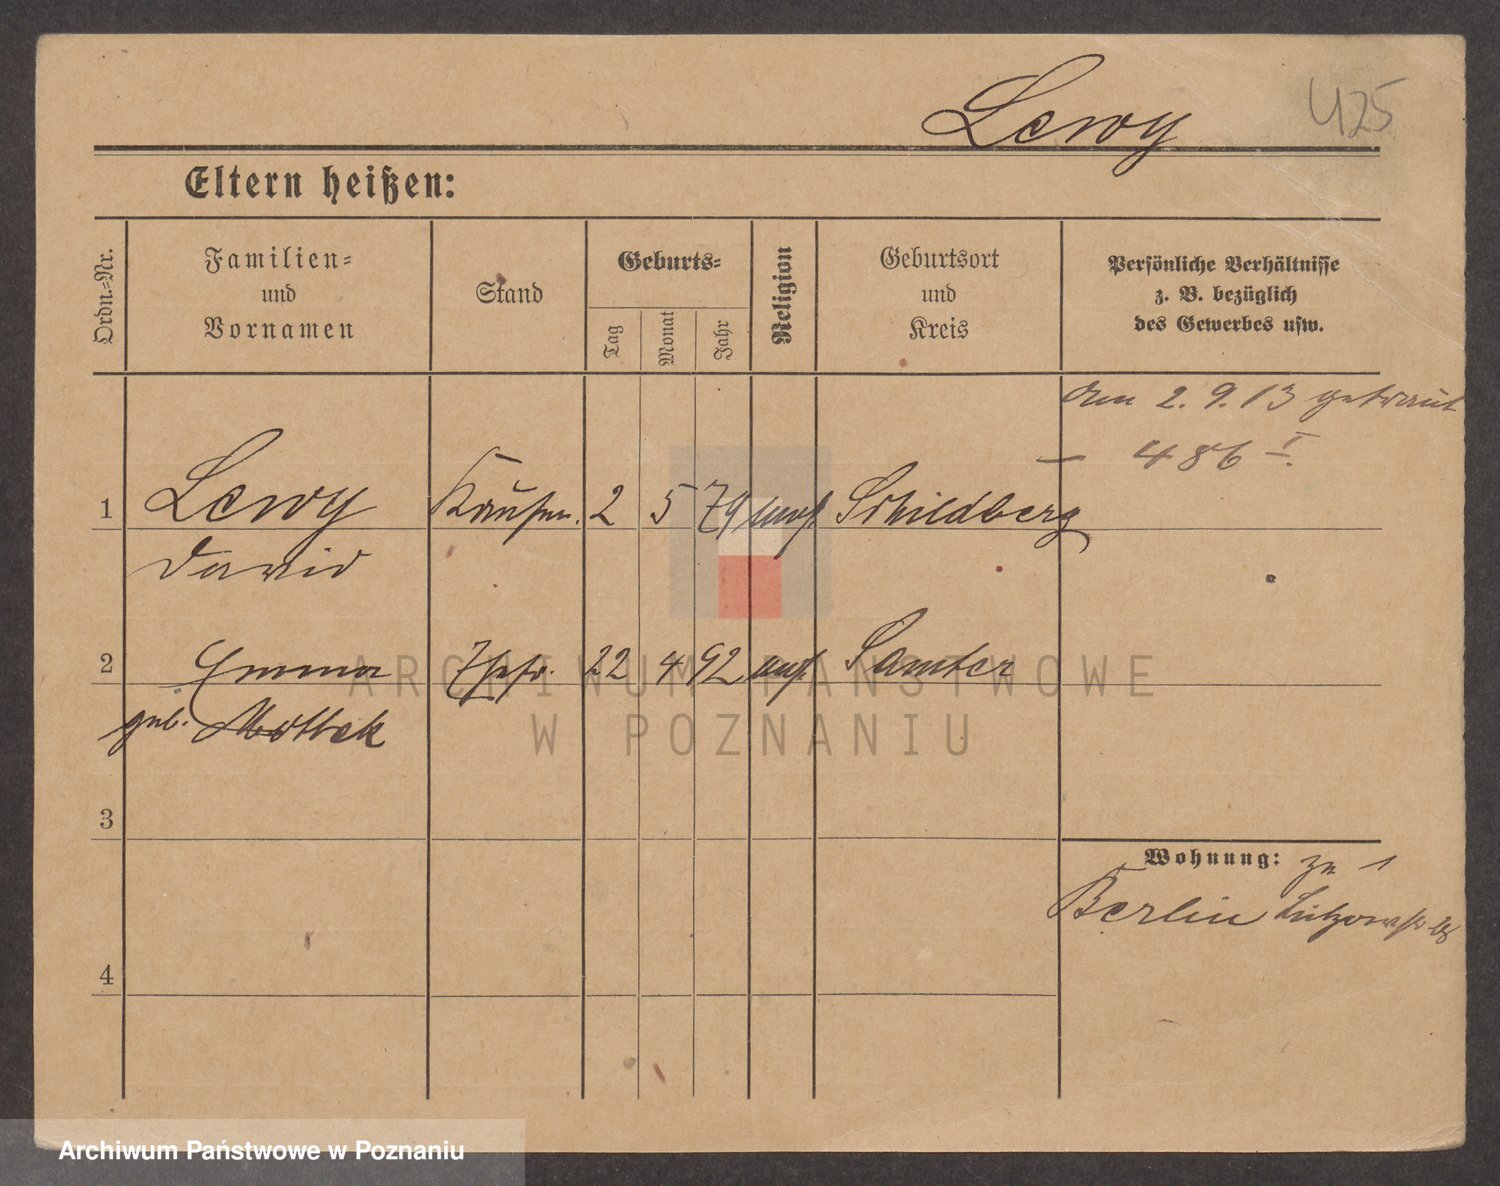 Lewy 425
Eltern heißen:
Ordn.-Nr.
Familien-
und
Vornamen
Stand
Geburts-
Tag
Monat
Jahr
Religion
Geburtsort
und
Kreis
Persönliche Verhältnisse
z. B. bezüglich
des Gewerbes usw.
am 2. 9. 13 getraut
— 486 I.
1 Lewy Kaufm. 2 5 79 mos Schildberg
David
2 Emma Ehefr. 22 4 92 mos Samter
geb. Mottek
3
Wohnung: zu 1
Berlin Lützowstr
4
ARCHIWUM PAŃSTWOWE
W POZNANIU
Archiwum Państwowe w Poznaniu